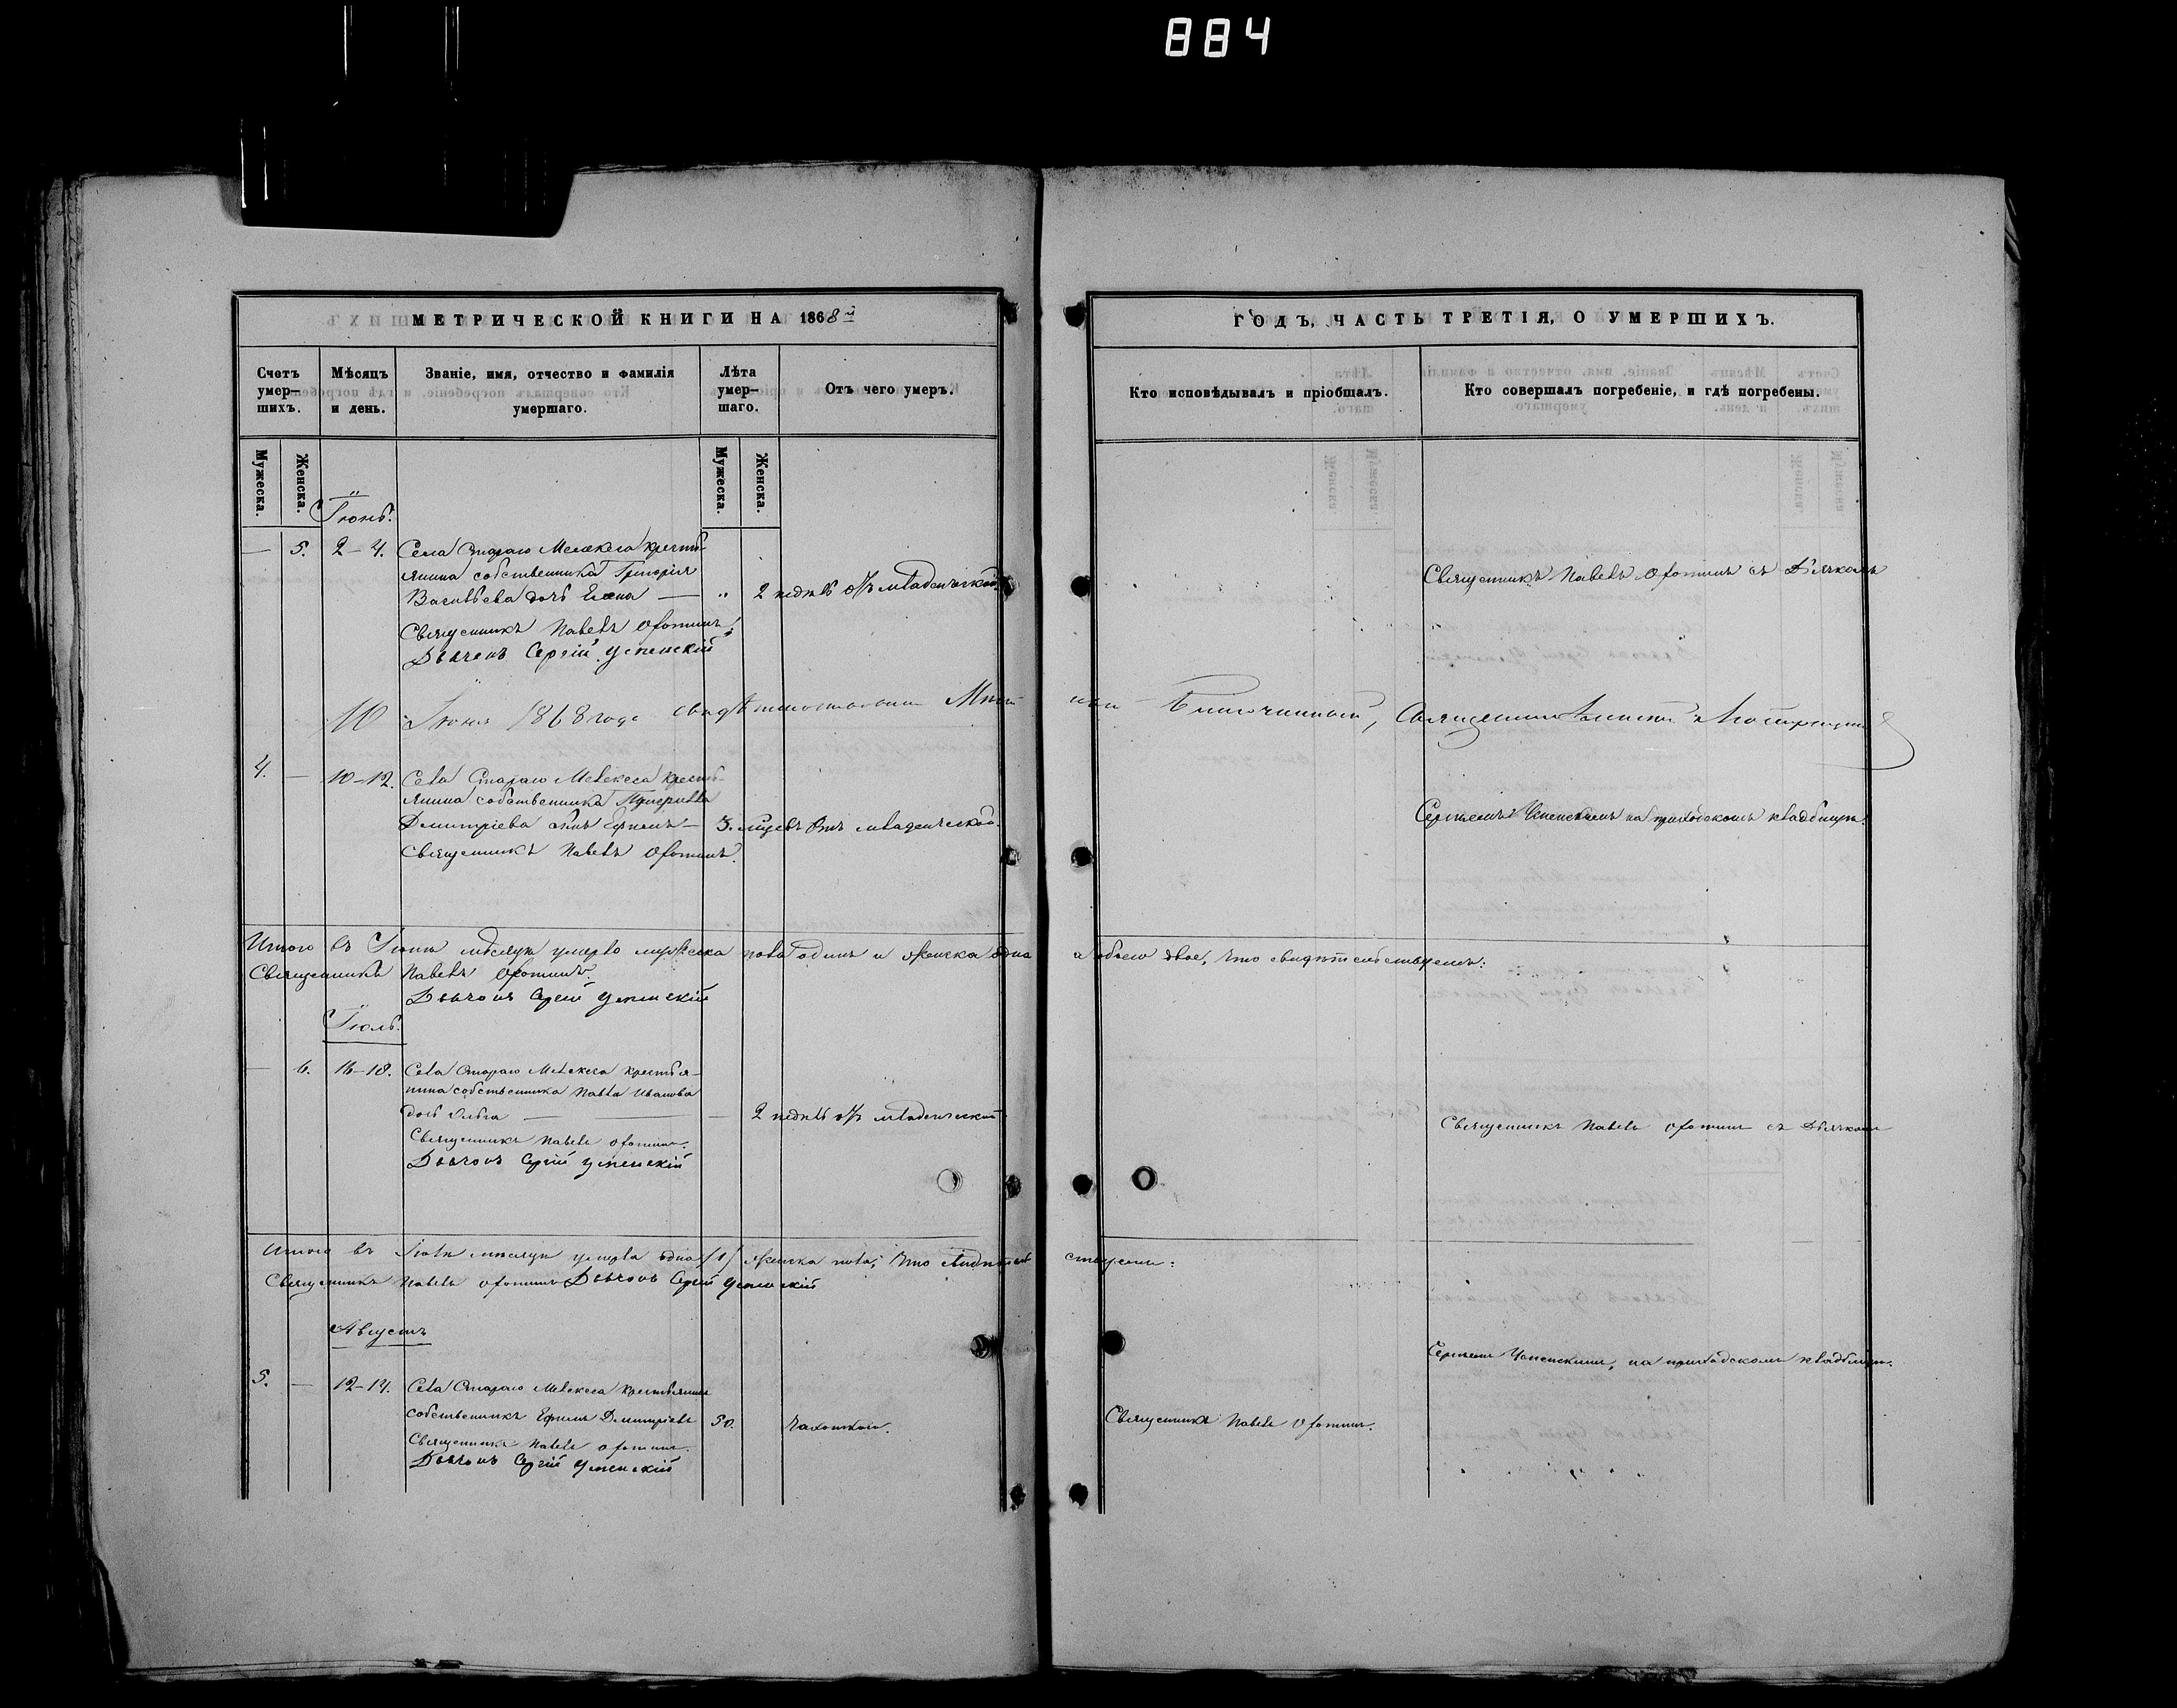 884
МЕТРИЧЕСКОЙ КНИГИ НА 1868й
Счетъ умер-шихъ.
Мѣсяцъ и день.
Званіе, имя, отчество и фамилія умершаго.
Лѣта умер-шаго.
Отъ чего умеръ.
Мужеска.
Женска.
Мужеска.
Женска.
Іюнь.
— 5. 2–4. Села Стараго Мелекеса кресть-
янина собственника Григорія
Васильева дочь Елена — „ 2 недѣль отъ младенческой.
Священникъ Павелъ Фоминъ.
Дьячекъ Сергій Успенскій
10 Іюня 1868 года свидѣтельствовали
4. — 10–12. Села Стараго Мелекеса кресть-
янина собственника
Дмитріева сынъ Ефимъ — 3. отъ младенческой.
Священникъ Павелъ Фоминъ.
Итого въ Іюнѣ мѣсяцѣ умерло мужеска пола одинъ и женска одна
Священникъ Павелъ Фоминъ.
Дьячокъ Сергій Успенскій
Іюль.
— 6. 16–18. Села Стараго Мелекеса крестья-
нина собственника Павла Иванова
дочь Ольга — — 2 недѣль отъ младенческой.
Священникъ Павелъ Фоминъ.
Дьячокъ Сергій Успенскій
Итого въ Іюлѣ мѣсяцѣ умерла одна (1) женска пола, что свидѣтель
Священникъ Павелъ Фоминъ Дьячокъ Сергій Успенскій
Августъ
5. — 12–14. Села Стараго Мелекеса крестьянинъ
собственникъ Ефимъ Дмитріевъ 50. чахоткою.
Священникъ Павелъ Фоминъ.
Дьячокъ Сергій Успенскій
ГОДЪ, ЧАСТЬ ТРЕТІЯ, О УМЕРШИХЪ.
Кто исповѣдывалъ и пріобщалъ.
Кто совершалъ погребеніе, и гдѣ погребены.
Священникъ Павелъ Фоминъ съ Дьячкомъ
Благочинный, Священникъ
Сергѣемъ Успенскимъ на приходскомъ кладбищѣ.
а обоего двое, что свидѣтельствуемъ:
Священникъ Павелъ Фоминъ съ Дьячкомъ
ствуемъ:
Сергѣемъ Успенскимъ, на приходскомъ кладбищѣ.
Священникъ Павелъ Фоминъ.